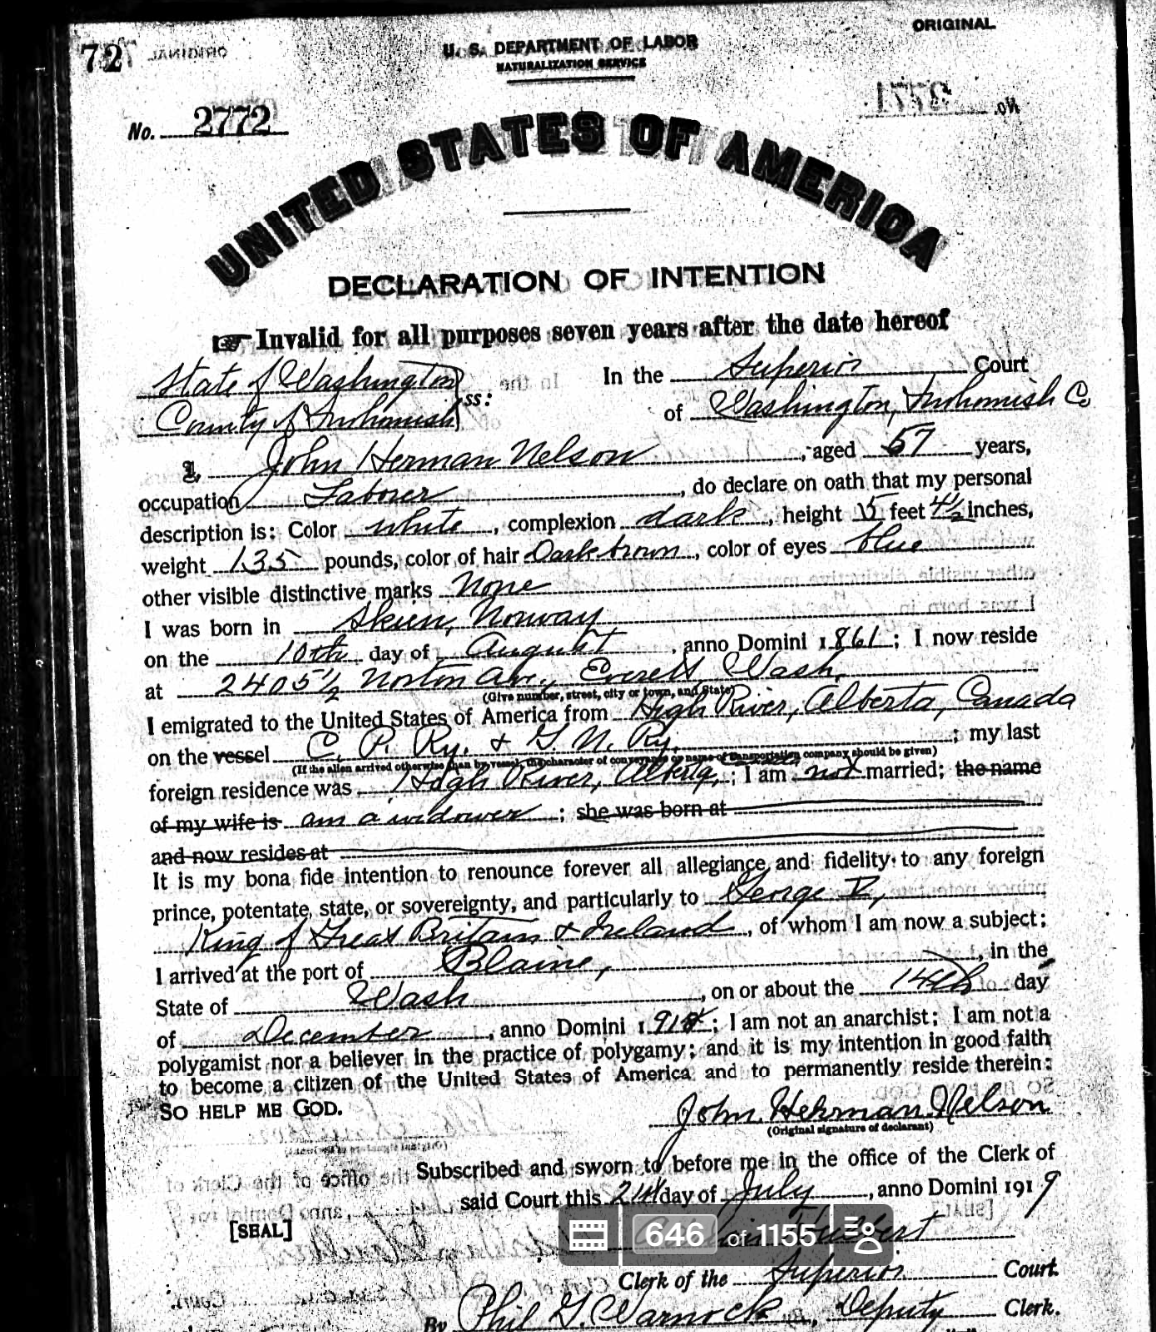 72
ORIGINAL
U. S. DEPARTMENT OF LABOR
NATURALIZATION SERVICE
No. 2772
UNITED STATES OF AMERICA
DECLARATION OF INTENTION
Invalid for all purposes seven years after the date hereof
State of Washington
County of Snohomish
ss:
In the Superior Court
of Washington, Snohomish Co
I, John Herman Nelson, aged 57 years,
occupation Laborer, do declare on oath that my personal
description is: Color white, complexion dark, height 5 feet 4½ inches,
weight 135 pounds, color of hair Dark brown, color of eyes blue
other visible distinctive marks None
I was born in Skien, Norway
on the 10th day of August, anno Domini 1861; I now reside
at 2405½ Norton Ave., Everett, Wash.
(Give number, street, city or town, and State)
I emigrated to the United States of America from High River, Alberta, Canada
on the vessel C. P. Ry. & G. N. Ry.; my last
(If the alien arrived otherwise than by vessel, the character of conveyance or name of transportation company should be given)
foreign residence was High River, Alberta,; I am not married; the name
of my wife is am a widower; she was born at
and now resides at
It is my bona fide intention to renounce forever all allegiance and fidelity to any foreign
prince, potentate, state, or sovereignty, and particularly to George V,
King of Great Britain & Ireland, of whom I am now a subject;
I arrived at the port of Blaine, in the
State of Wash, on or about the 14th day
of December, anno Domini; I am not an anarchist; I am not a
polygamist nor a believer in the practice of polygamy; and it is my intention in good faith
to become a citizen of the United States of America and to permanently reside therein:
SO HELP ME GOD.
John Herman Nelson
(Original signature of declarant)
Subscribed and sworn to before me in the office of the Clerk of
said Court this 21st day of July, anno Domini 1919
[SEAL]
646 of 1155
Clerk of the Superior Court.
By Phil G. Warnock, Deputy Clerk.